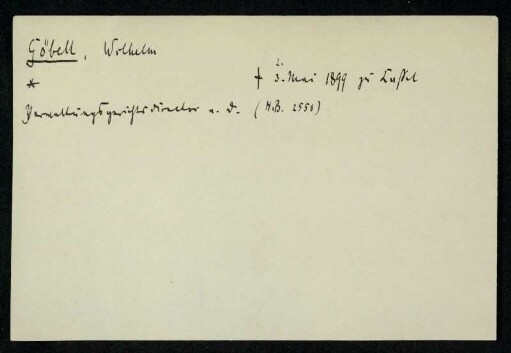 Göbell, Wilhelm
* † 2. 3. Mai 1899 zu Kassel
Verwaltungsgerichtsdirector a. D. (H.B. 2550)